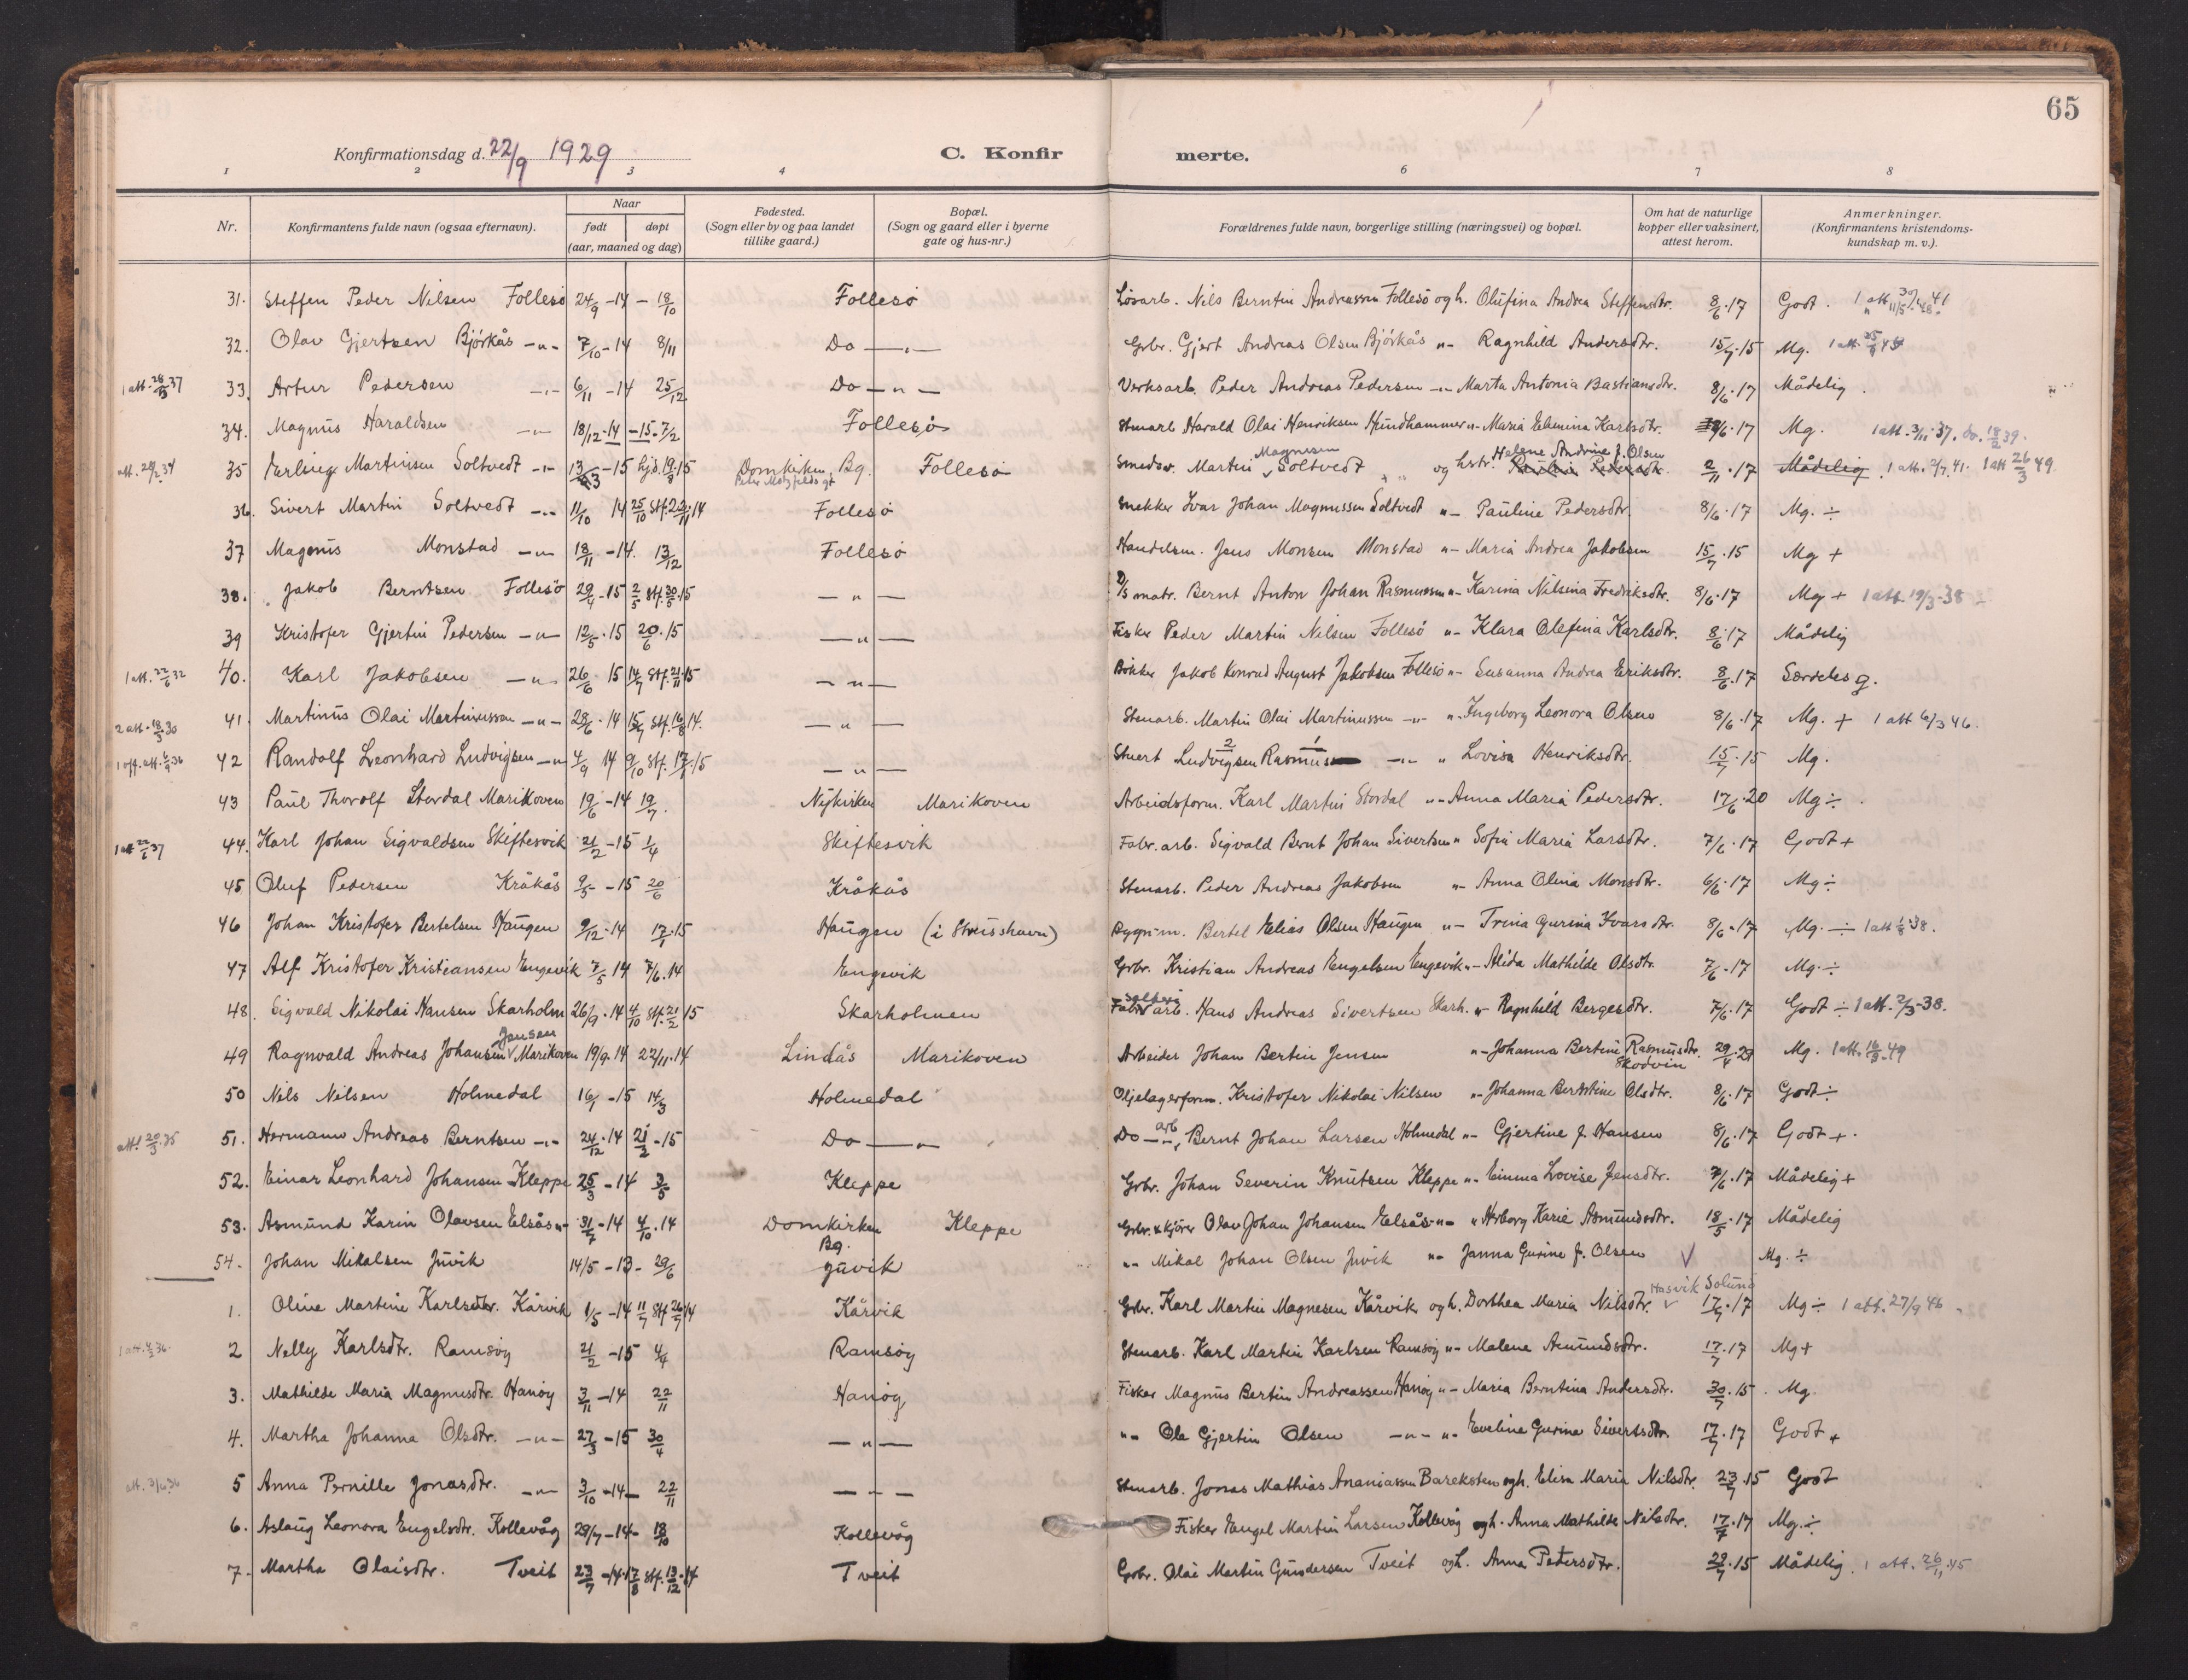 65
Konfirmationsdag d. 22/9 1929
C. Konfir merte.
1 2 3 4 6 7 8
Nr. Konfirmantens fulde navn (ogsaa efternavn). Naar født døpt (aar, maaned og dag) Fødested. (Sogn eller by og paa landet tillike gaard.) Bopæl. (Sogn og gaard eller i byerne gate og hus-nr.) Forældrenes fulde navn, borgerlige stilling (næringsvei) og bopæl. Om hat de naturlige kopper eller vaksinert, attest herom. Anmerkninger. (Konfirmantens kristendomskundskap m. v.).
31. Steffen Peder Nilsen Follesö 24/9 -14 - 18/10 Follesö Løsarb. Nils Berntin Andreassen Follesö og h. Olufina Andrea Steffensdtr. 8/6.17 Godt.
32. Olav Gjertsen Björkås -"- 7/10 -14 8/11 Do -"- Grbr. Gjert Andreas Olsen Björkås "- Ragnhild Andersdtr. 15/7.15 Mg.
1 att. 28/5 37 33. Artur Pedersen -"- 6/11 -14 25/12 Do -"- Verksarb. Peder Andreas Pedersen -"- Marta Antonia Bastiansdtr. 8/6.17 Mådelig.
34. Magnus Haraldsen -"- 18/12 -14 -15- 7/2 Follesö Stenarb. Harald Olai Henriksen Hundhammer "- Maria Elumina Karlsdtr. 8/6.17 Mg. 1 att. 3/11 37. do. 18/2 39.
35 Erling Martinsen Soltvedt -"- 13/3 -15 hjd. 19/8.15 Domkirken, Bg. Follesö Smedsv. Martin Magnesen Soltvedt og hstr. Helene Andrine f. Olsen 2/11.17 Mådelig. 1 att. 2/7 41. 1 att 26/3 49
36. Sivert Martin Soltvedt -"- 11/10 14 25/10 stf. 22/11 14 Follesö Snekker Ivar Johan Magnussen Soltvedt "- Pauline Pedersdtr. 8/6.17 Mg. ÷
37 Magnus Monstad -"- 18/11 -14. 13/12 Follesö Handelsm. Jens Monsen Monstad "- Maria Andrea Jakobsen 15/7.15 Mg +
38. Jakob Berntsen Follesö 29/4 -15 2/5 stf. 30/5 15 -"- D/S matr. Bernt Anton Johan Rasmussen "- Karina Nilsina Fredriksdtr. 8/6.17 Mg + 1 att. 19/3-38
39 Kristofer Gjertin Pedersen -"- 12/5.15 20/6.15 -"- Fisker Peder Martin Nilsen Follesö "- Klara Olefina Karlsdtr. 8/6.17 Mådelig
1 att. 22/6 32 40. Karl Jakobsen -"- 26/6 15 14/7 stf. 21/11 15 -"- Bökker Jakob Konrad August Jakobsen Follesö "- Susanna Andrea Eriksdtr. 8/6.17 Særdeles g.
2 att. 18/3 30 41. Martinus Olai Martinussen -"- 28/6.14 15/7 stf. 16/8 14. -"- Stenarb. Martin Olai Martinussen -"- "- Ingeborg Leonora Olsen 8/6.17 Mg. + 1 att 6/3 46.
42 Randolf Leonhard Ludvigsen -"- 4/9 14 9/10 stf. 17/1.15 -"- Stuert Ludvigsen Rasmus -"- " Lovisa Henriksdtr. 15/7.15 Mg.
43 Paul Thorolf Stordal Marikoven 19/6 -14 19/7. Nykirken Marikoven Arbeidsform. Karl Martin Stordal "- Anna Maria Pedersdtr. 17/6.20 Mg ÷
1 att 22/6 37 44. Karl Johan Sigvaldsen Skiftesvik 21/2 -15 1/4 Skiftesvik Fabr. arb. Sigvald Bernt Johan Sivertsen " Sofia Maria Larsdtr. 7/6.17 Godt +
45 Oluf Pedersen Kråkås 9/5 -15 20/6 Kråkås Stenarb. Peder Andreas Jakobsen "- Anna Olina Monsdtr. 6/6.17 Mg ÷
46 Johan Kristofer Bertelsen Haugen 9/12.14 17/1.15 Haugen (i Strusshavn) Bygn.m. Bertel Elias Olsen Haugen "- Trina Gurina Ivarsdtr. 8/6.17 Mg. ÷ 1 att 1/8 38.
47 Alf Kristofer Kristiansen Engevik 7/5 14 7/6.14 Engevik Grbr. Kristian Andreas Engelsen Engevik "- Alida Mathilde Olsdtr. 7/6.17 Mg. ÷
48. Sigvald Nikolai Hansen Skarholm 26/9.14 4/10 stf. 21/2 15 Skarholmen Fabr arb. Hans Andreas Sivertsen Skarh. "- Ragnhild Bergesdtr. 7/6.17 Godt ÷ 1 att. 2/3-38.
49 Ragnvald Andreas Johansen Jensen Marikoven 19/9.14 22/11.14 Lindås Marikoven Arbeider Johan Bertin Jensen "- Johanna Bertine Rasmusdtr. Skodvin 29/4.29 Mg. 1 att. 16/8.49
50 Nils Nilsen Holmedal 16/1 -15 14/3 Holmedal Oljelagerform. Kristofer Nikolai Nilsen "- Johanna Berntine Olsdtr. 8/6.17 Godt ÷
att. 20/3.35 51. Hermann Andreas Berntsen -"- 24/12.14 21/2 -15 Do -"- Do -"- arb. Bernt Johan Larsen Holmedal "- Gjertine f. Hansen 8/6.17 Godt +.
52. Einar Leonhard Johansen Kleppe 25/3 -14 3/5 Kleppe Grbr. Johan Severin Knutsen Kleppe "- Emma Lovise Jensdtr. 7/6.17 Mådelig +
53. Asmund Karin Olavsen Elsås "- 31/7 -14 4/10.14 Domkirken Bg. Kleppe Grbr. & kjører Olav Johan Johansen Elsås -"- " Herborg Karie Asmundsdtr. 18/5.17 Mådelig
54. Johan Mikalsen Juvik 14/5 -13 - 29/6 Juvik "- Mikal Johan Olsen Juvik "- Janna Gurine f. Olsen V Mg. ÷
1. Oline Martine Karlsdtr. Kårvik 1/5 -14 11/7 stf 26/7 14 Kårvik Grbr. Karl Martin Magnesen Kårvik og h. Dorthea Maria Nilsdtr. Hasvik Solund 17/7.17 Mg ÷ 1 att. 27/9 46
2 Nelly Karlsdtr. Ramsöy 21/2 -15 4/4 Ramsöy Stenarb. Karl Martin Karlsen Ramsöy "- Malene Amundsdtr. 17/7.17 Mg +
3. Mathilde Maria Magnusdtr. Hanöy 3/11 -14 22/11 Hanöy Fisker Magnus Bertin Andreassen Hanöy "- Maria Berntina Andersdtr. 30/7.15. Mg.
4. Martha Johanna Olsdtr. -"- 27/3 -15 30/4 -"- "- Ole Gjertin Olsen -"- "- Eveline Gurine Sivertsdtr. 17/7.17 Godt +
5 Anna Pernille Jonasdtr. -"- 3/10 -14 - 22/11 -"- Stenarb. Jonas Mathias Ananiassen Bareksten og h. Elisa Maria Nilsdtr. 23/7.15 Godt
6. Aslaug Leonora Engelsdtr. Kollevåg 29/7 -14 - 18/10 Kollevåg Fisker Engel Martin Larsen Kollevåg og h. Anna Mathilde Nilsdtr. 17/7.17 Mg. ÷
7. Martha Olaisdtr. Tveit 23/7 -14. 17/8 stf. 13/12.14 Tveit Grbr. Olai Martin Gundersen Tveit og h. Anna Petersdtr. 29/7.15 Mådelig. 1 att. 26/11.45